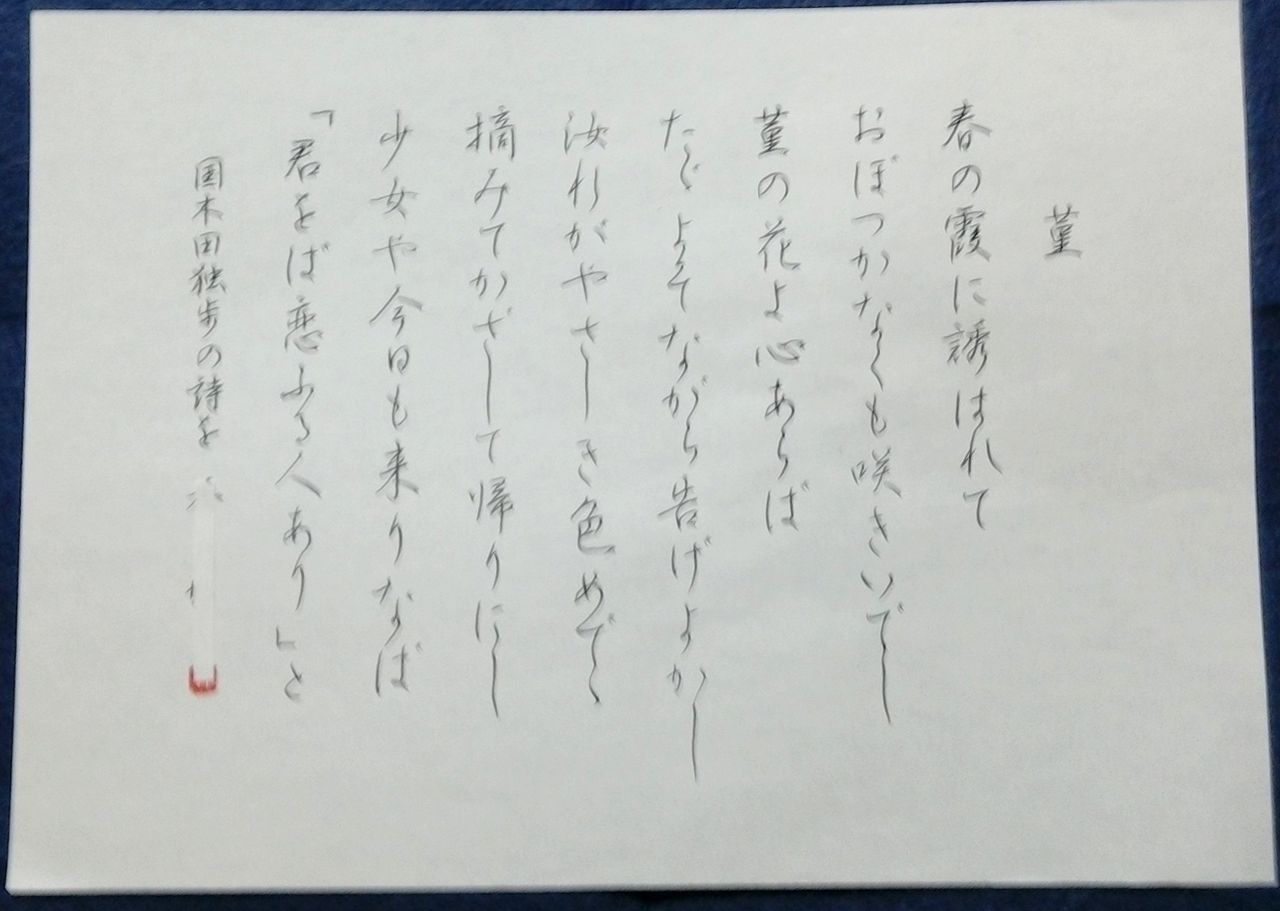 菫
春の霞に誘はれて
おぼつかなくも咲きいでし
菫の花よ心あらば
たゞよそながら告げよかし
汝れがやさしき色めでゝ
摘みてかざして帰りにし
少女や今日も来りなば
「君をば恋ふる人あり」と
国木田独歩の詩を